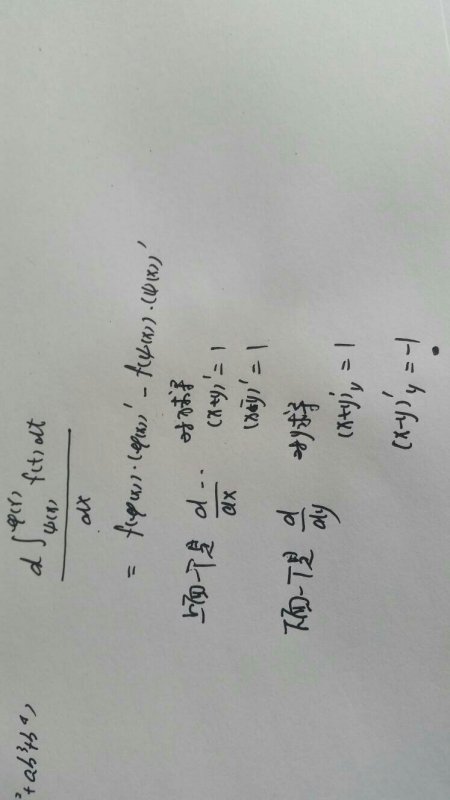 ² + ab³ + b⁴)
d∫_{ψ(x)}^{φ(x)} f(t)dt
dx
= f(φ(x))·(φ(x))′ - f(ψ(x))·(ψ(x))′
上面一个是 d··/dx 对x求导
(x+y)′ = 1
(x-y)′ = 1
下面一个是 d/dy 对y求导
(x+y)′y = 1
(x-y)′y = -1